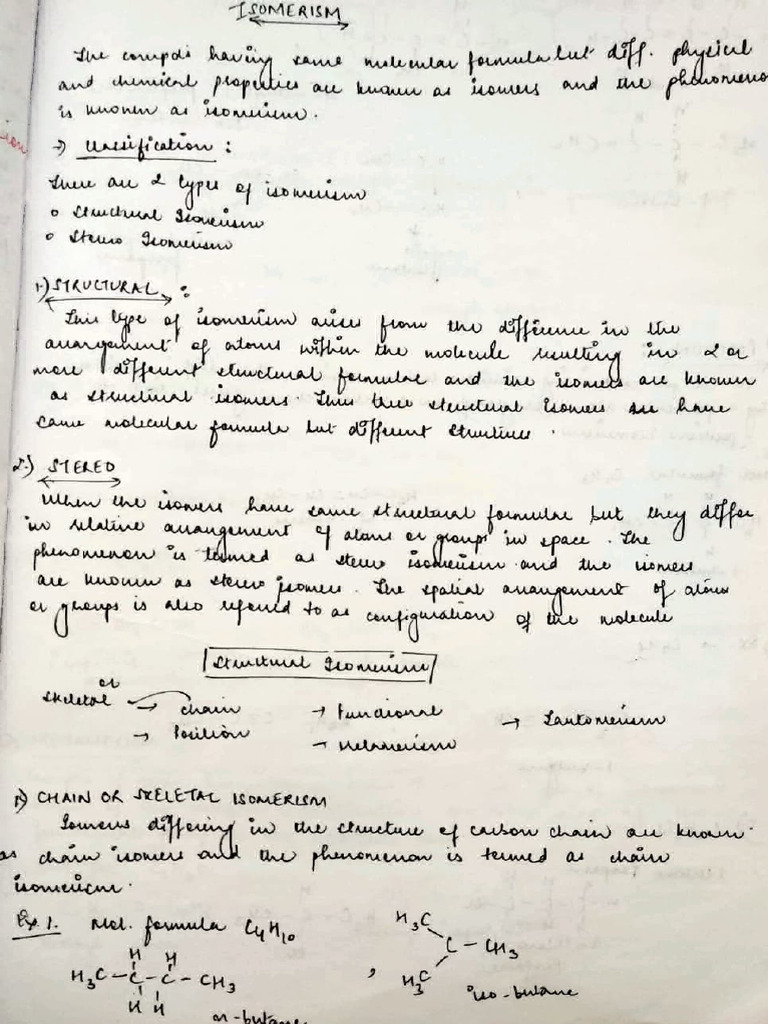 ISOMERISM
The compds having same molecular formula but diff. physical
and chemical properties are known as isomers and the phenomenon
is known as isomerism.
→ Classification :
There are 2 types of isomerism
o Structural Isomerism
o Stereo Isomerism
1.) STRUCTURAL :
This type of isomerism arises from the difference in the
arrangement of atoms within the molecule resulting in 2 or
more different structural formulae and the isomers are known
as structural isomers. Thus structural isomers have
same molecular formula but different structures.
2.) STEREO
When the isomers have same structural formulae but they differ
in relative arrangement of atoms or groups in space. The
phenomenon is termed as stereo isomerism and the isomers
are known as stereo isomers. The spatial arrangement of atoms
or groups is also referred to as configuration of the molecule
Structural Isomerism
or
skeletal → Chain → Functional → Tautomerism
→ Position → Metamerism
1) CHAIN OR SKELETAL ISOMERISM
Isomers differing in the structure of carbon chain are known
as chain isomers and the phenomenon is termed as chain
isomerism.
Ex 1. Mol. formula C4H10
H H
H3C - C - C - CH3
H H
n-butane
,
H3C
C - CH3
H3C
iso-butane